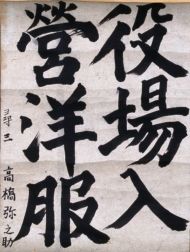 役場入
營洋服
尋三 高橋弥之助